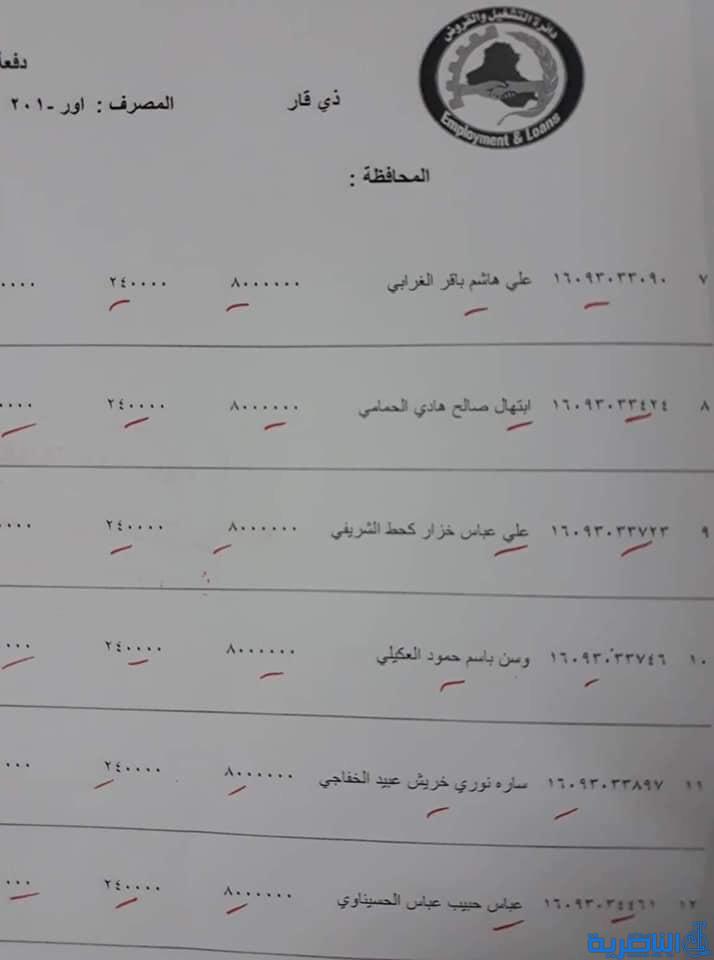 دائرة التشغيل والقروض
Employment & Loans
دفعة
ذي قار المصرف : اور -٢٠١
المحافظة :
٧ ١٦٠٩٣٠٣٣٠٩٠ علي هاشم باقر الغرابي ٨٠٠٠٠٠٠ ٢٤٠٠٠٠ ٠٠٠٠
٨ ١٦٠٩٣٠٣٣٤٢٤ ابتهال صالح هادي الحمامي ٨٠٠٠٠٠٠ ٢٤٠٠٠٠ ٠٠٠٠
٩ ١٦٠٩٣٠٣٣٧٢٣ علي عباس خزار كحط الشريفي ٨٠٠٠٠٠٠ ٢٤٠٠٠٠ ٠٠٠٠
١٠ ١٦٠٩٣٠٣٣٧٤٦ وسن باسم حمود العكيلي ٨٠٠٠٠٠٠ ٢٤٠٠٠٠ ٠٠٠
١١ ١٦٠٩٣٠٣٣٨٩٧ ساره نوري خريش عبيد الخفاجي ٨٠٠٠٠٠٠ ٢٤٠٠٠٠ ٠٠٠
١٢ ١٦٠٩٣٠٣٤٤٦١ عباس حبيب عباس الحسيناوي ٨٠٠٠٠٠٠ ٢٤٠٠٠٠ ٠٠٠
الناصرية